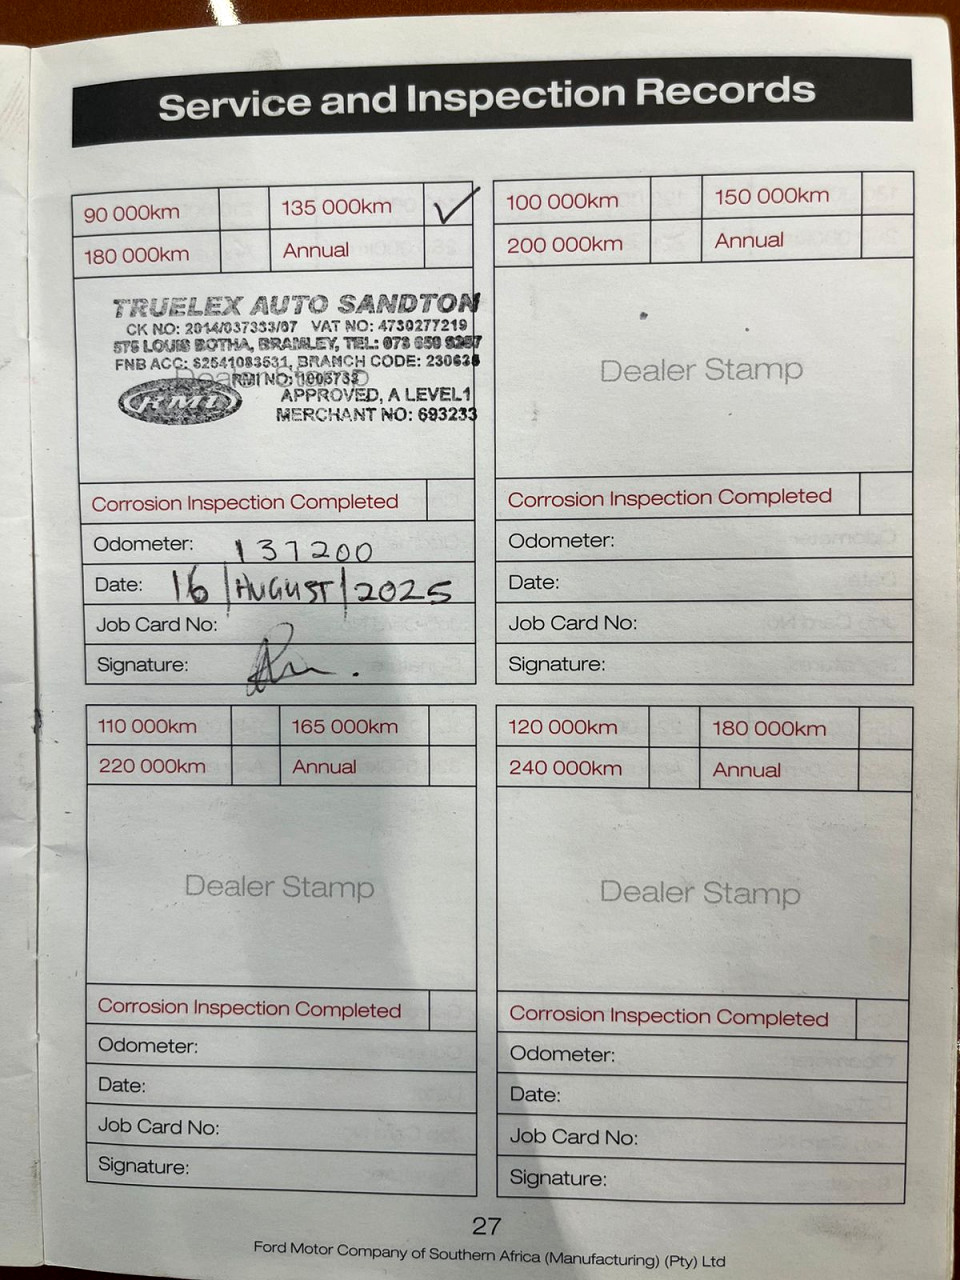 Service and Inspection Records
90 000km 135 000km ✓
180 000km Annual
TRUELEX AUTO SANDTON
CK NO: 2014/037353/07 VAT NO: 4730277219
575 LOUIS BOTHA, BRAMLEY, TEL:
FNB ACC: 62541083531, BRANCH CODE:
RMI NO:
RMI APPROVED, A LEVEL1
MERCHANT NO: 693233
Corrosion Inspection Completed
Odometer: 137200
Date: 16/AUGUST/2025
Job Card No:
Signature:
100 000km 150 000km
200 000km Annual
Dealer Stamp
Corrosion Inspection Completed
Odometer:
Date:
Job Card No:
Signature:
110 000km 165 000km
220 000km Annual
Dealer Stamp
Corrosion Inspection Completed
Odometer:
Date:
Job Card No:
Signature:
120 000km 180 000km
240 000km Annual
Dealer Stamp
Corrosion Inspection Completed
Odometer:
Date:
Job Card No:
Signature:
27
Ford Motor Company of Southern Africa (Manufacturing) (Pty) Ltd